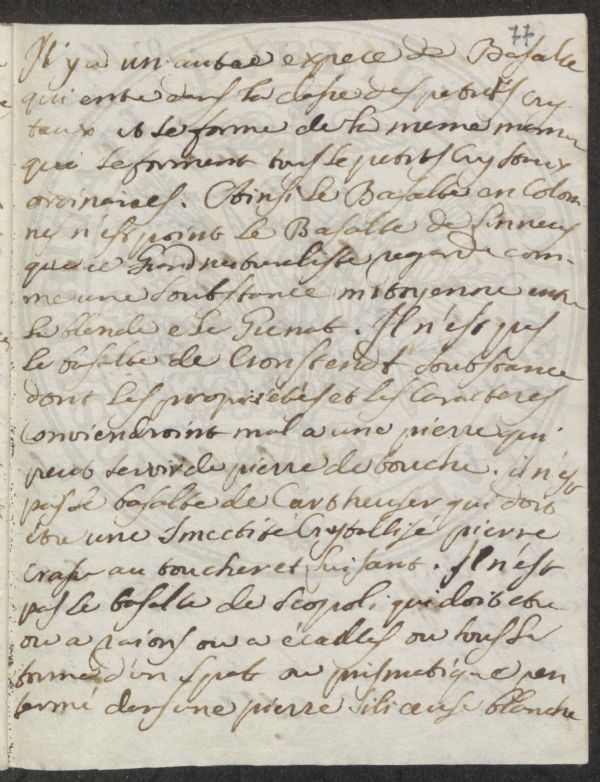 77
Il y a un autre espece de Basalte
qui entre dans la classe des petits Cry
taux et se forme de la meme manie
que se forment tous le petits Crystaux
ordinaires. Ainsi le Basalte en Colom
nes n'est point le Basalte de Linneus
que ce Grand naturaliste regarde com-
me une Soubstance mitoyenne entre
la blende e le Grenat. Il n'est pas
le basalte de Cronstendt Soubstance
dont les proprietés et les Caracteres
Conviendroint mal a une pierre qui
peut servir de pierre de touche. il n'est
pas le basalte de Cartheuser qui doit
etre une Smectite Crystallise pierre
crasse au toucher et luisant. Il n'est
pas le basalte de Scopoli, qui doit etre
ou a raions ou a écailles ou sous la
forme d'un Spat ou prismatique en
fermé dans une pierre siliceuse blanche